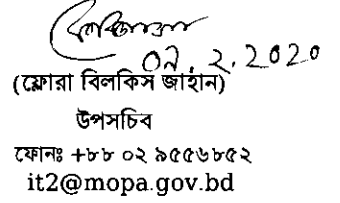 ০৭.২.2020
(ফ্লোরা বিলকিস জাহান)
উপসচিব
ফোনঃ +৮৮ ০২ ৯৫৫৬৮৫২
it2@mopa.gov.bd